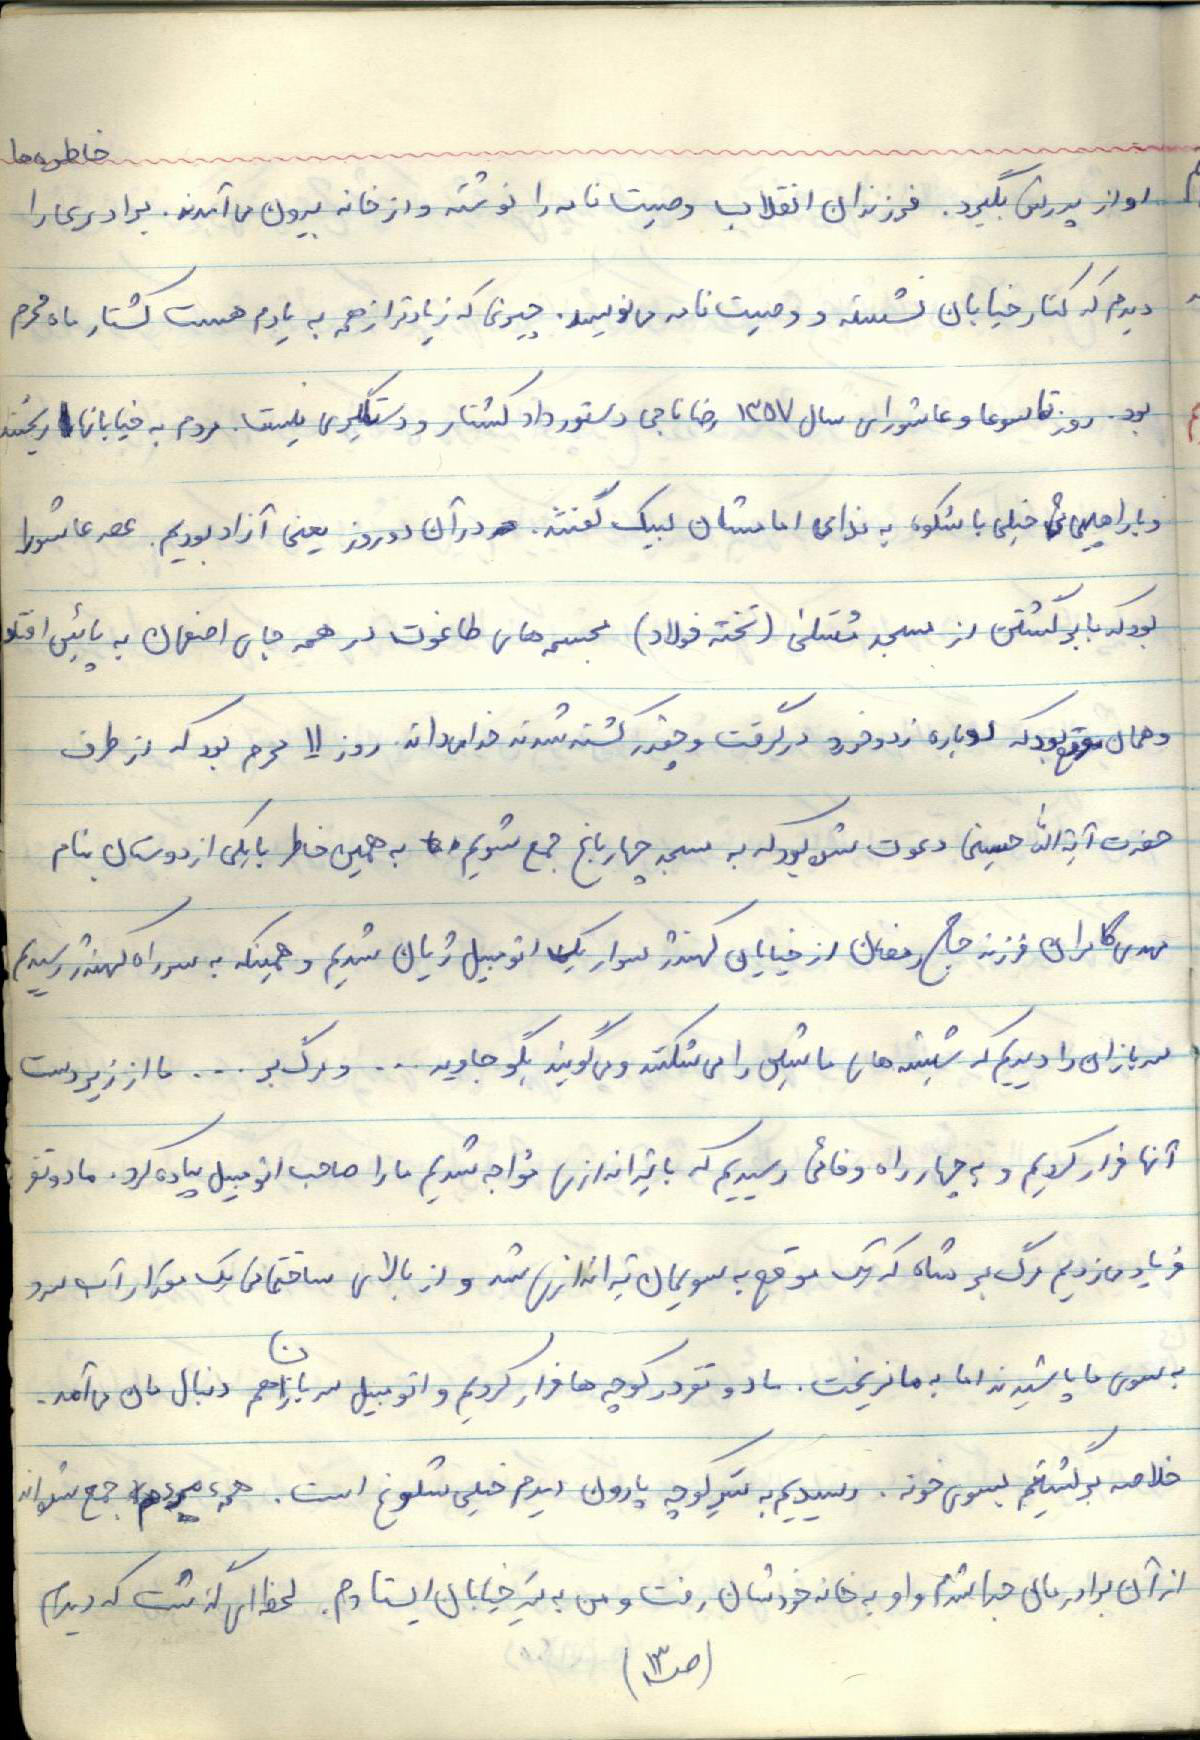 خاطره‌ها
او از پدرش بگیرد. فرزندان انقلاب وصیت نامه را نوشته و از خانه بیرون می‌آمدند. برادری را
دیدم که کنار خیابان نشسته و وصیت نامه می‌نویسد. چیزی که زیادتر از همه به یادم هست کشتار ماه محرم
بود. روز تاسوعا و عاشورای سال ۱۳۵۷ رضا ناجی دستور داد کشتار و دستگیری نیست. مردم به خیابانها ریختند
و با راهپیمائی خیلی با شکوه به ندای امامشان لبیک گفتند. در آن دو روز یعنی آزاد بودیم. عصر عاشورا
بود که با برگشتن از مسجد مصلی (تخته فولاد) مجسمه های طاغوت در همه جای اصفهان به پائین افتاد
و همان موقع بود که دوباره زد و خورد در گرفت و چقدر کشته شدند خدا می‌داند. روز ۱۱ محرم بود که از طرف
حضرت آیة الله خمینی دعوت شده بود که به مسجد چهارباغ جمع شویم به همین خاطر با یکی از دوستان بنام
مهدی کامران فرزند حاج رمضان از خیابان کهندژ سوار یک اتومبیل ژیان شدیم و همینکه به سر راه کهندژ رسیدیم
سربازان را دیدیم که شیشه های ماشین را می‌شکنند و می‌گویند بگو جاوید ... و مرگ بر ... ما از زیر دست
آنها فرار کردیم و به چهار راه وفائی رسیدیم که با تیراندازی مواجه شدیم ما را صاحب اتومبیل پیاده کرد. ما دو نفر
فریاد می‌زدیم مرگ بر شاه که یک موقع به سویمان تیراندازی شد و از بالای ساختمانی یک مقدار آب سرد
به سوی ما پاشیدند اما به ما نریخت. ما دو نفر در کوچه ها فرار کردیم و اتومبیل سربازان هم دنبال مان می‌آمد.
خلاصه برگشتیم بسوی خونه. رسیدیم به سَرِ کوچه پارون دیدم خیلی شلوغ است. همهٔ مردم جمع شده‌اند
از آن برادرمان جدا شدم و او به خانه خودشان رفت و من به سَرِ خیابان ایستادم. لحظه‌ای گذشت که دیدم
(ص۱۳)